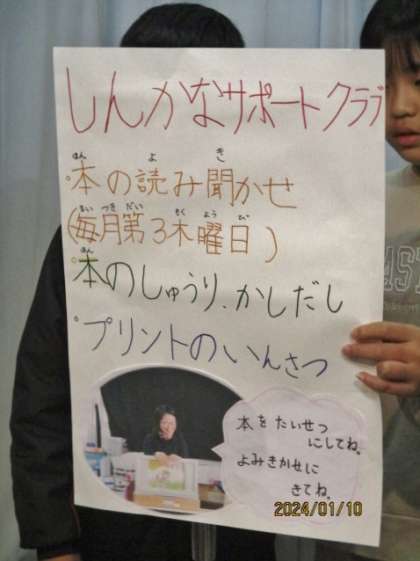 しんかなサポートクラブ
ほん よ き
°本の読み聞かせ
まい つき だい もく よう び
(毎月第3木曜日)
ほん
°本のしゅうり、かしだし
°プリントのいんさつ
本をたいせつ
にしてね。
よみきかせに
きてね。
2024/01/10